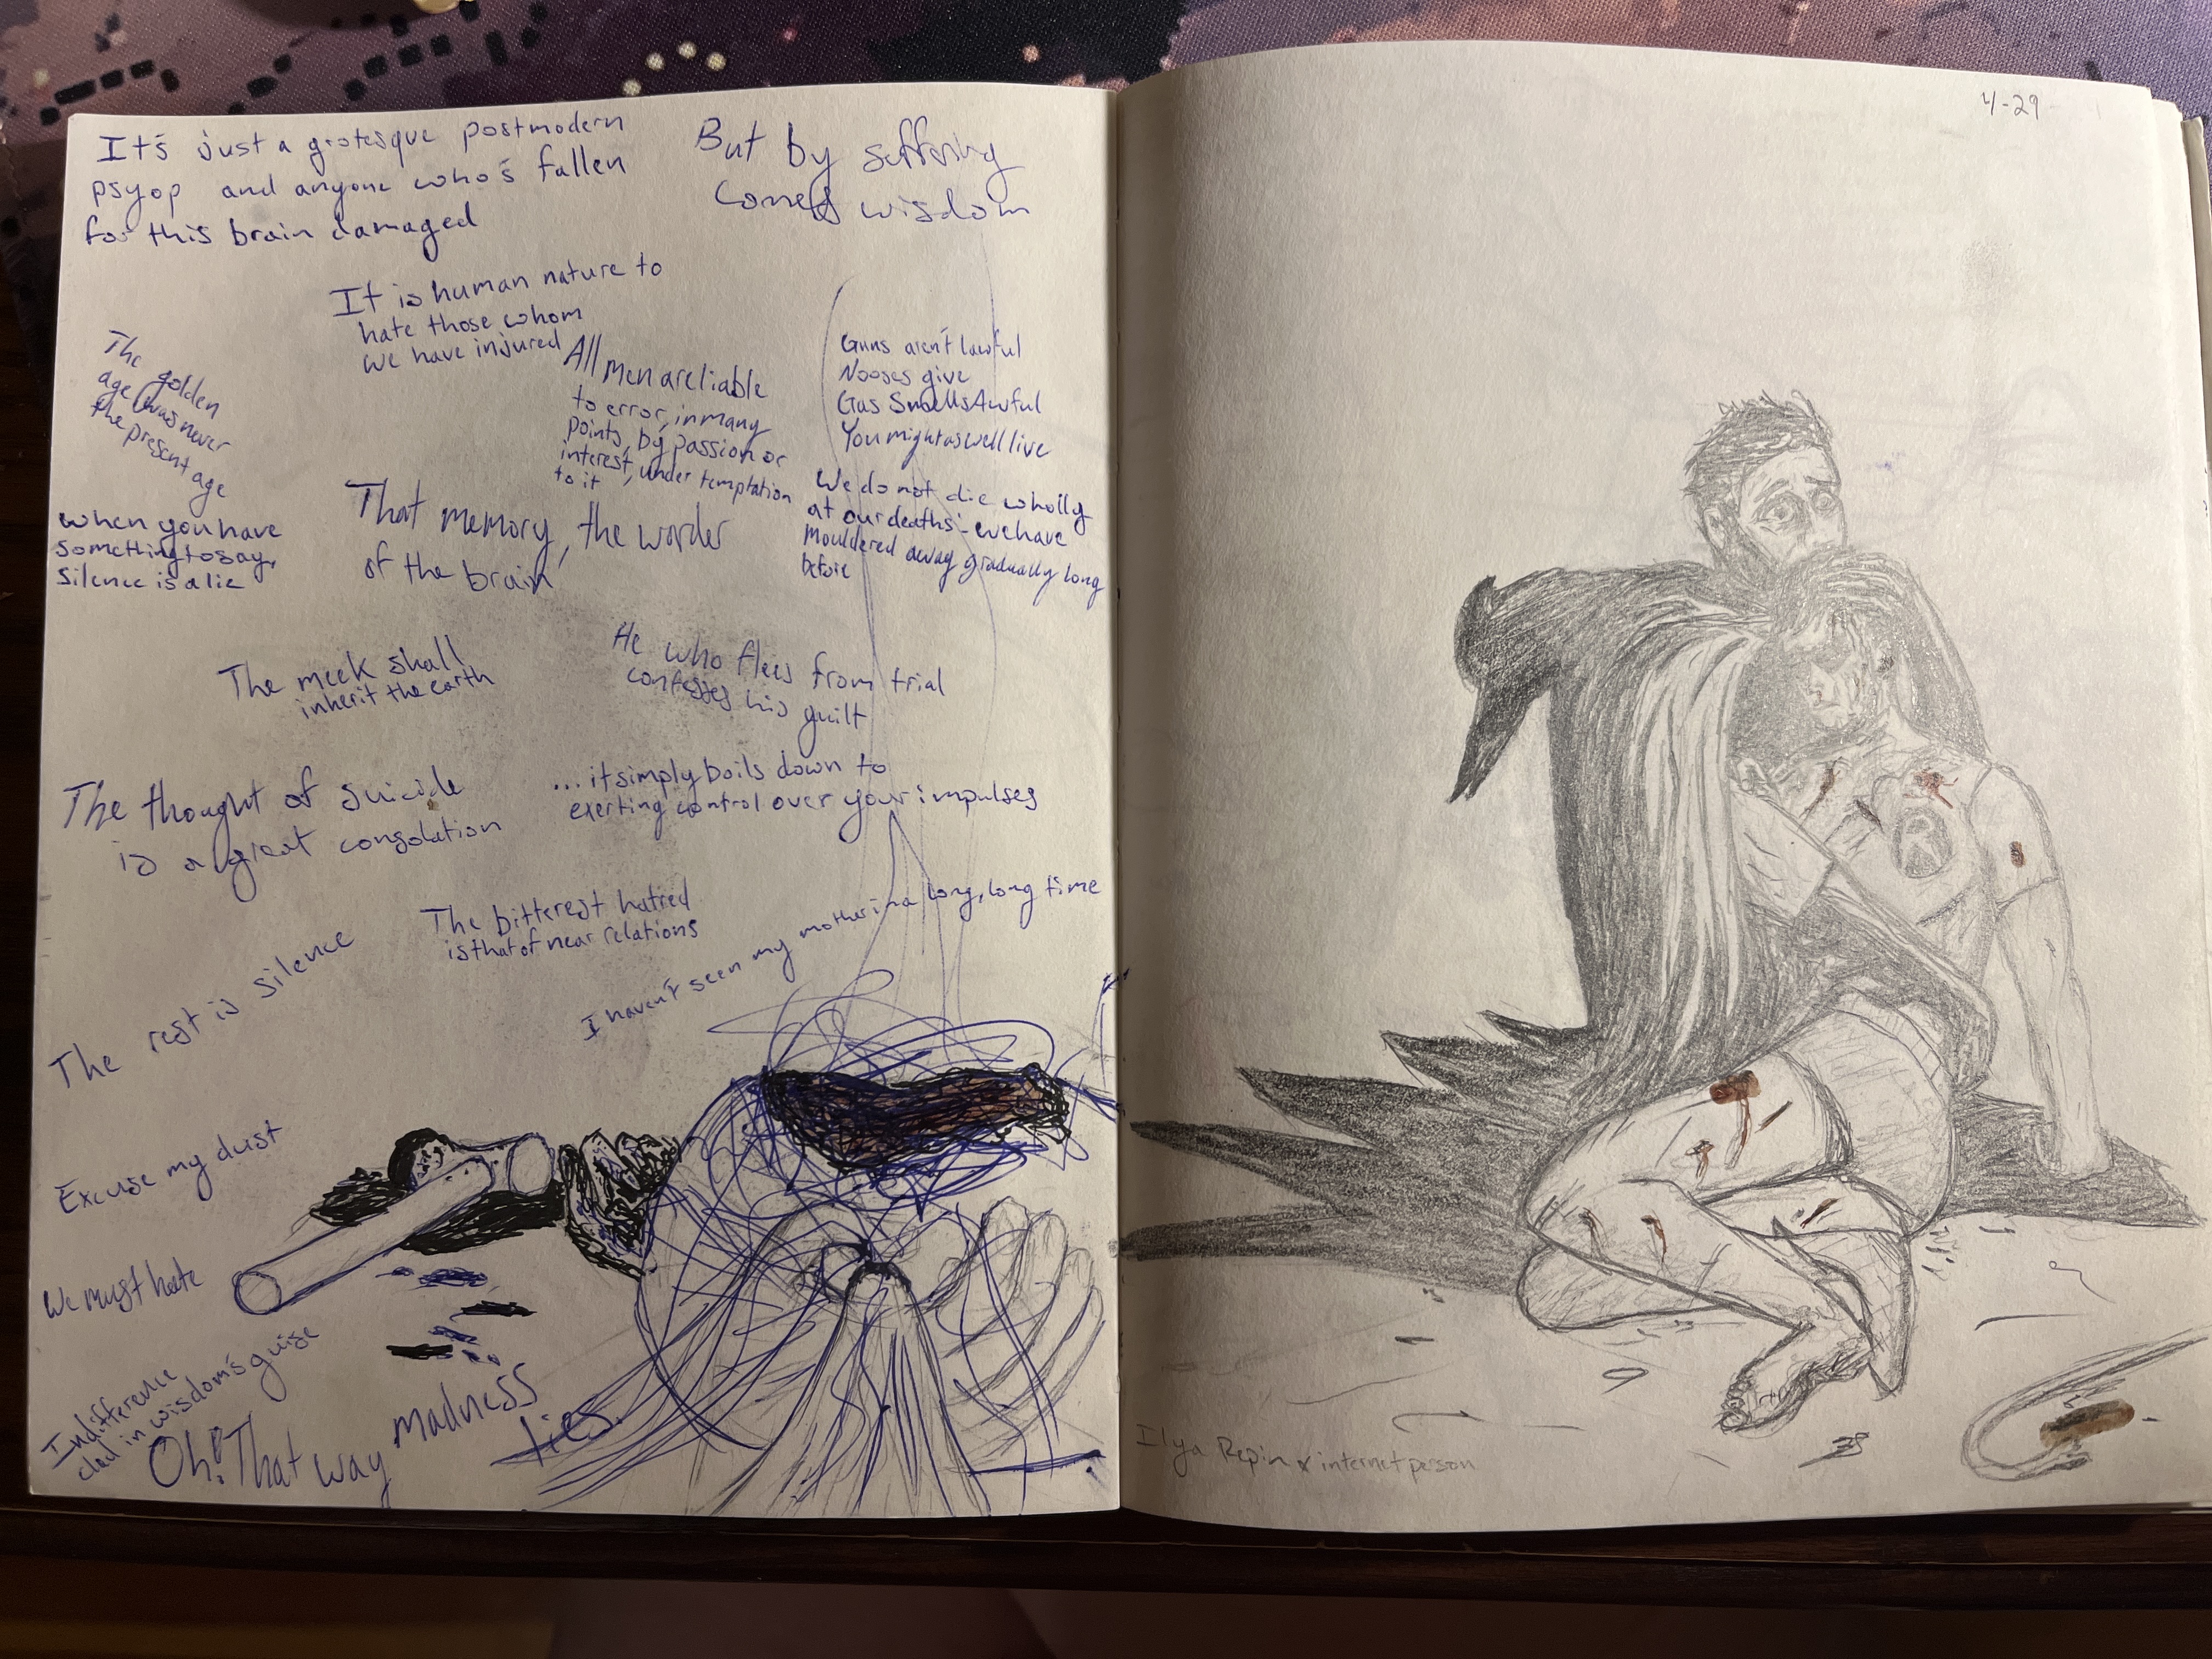 It's just a grotesque postmodern
psyop and anyone who's fallen
for this brain damaged
But by suffering
comes wisdom
It is human nature to
hate those whom
we have injured
The golden
age was never
the present age
All men are liable
to error, in many
points, by passion or
interest, under temptation
to it
Guns aren't lawful
Nooses give
Gas Smells Awful
You might as well live
when you have
something to say,
silence is a lie
That memory, the warder
of the brain
We do not die wholly
at our deaths: we have
mouldered away gradually long
before
The meek shall
inherit the earth
He who flees from trial
confesses his guilt
The thought of suicide
is a great consolation
...it simply boils down to
exerting control over your impulses
The bitterest hatred
is that of near relations
I haven't seen my mother in a long, long time
The rest is silence
Excuse my dust
We must hate
Indifference
clad in wisdom's guise
Oh! That way madness
lies.
4-29
R
Ilya Repin & internet person